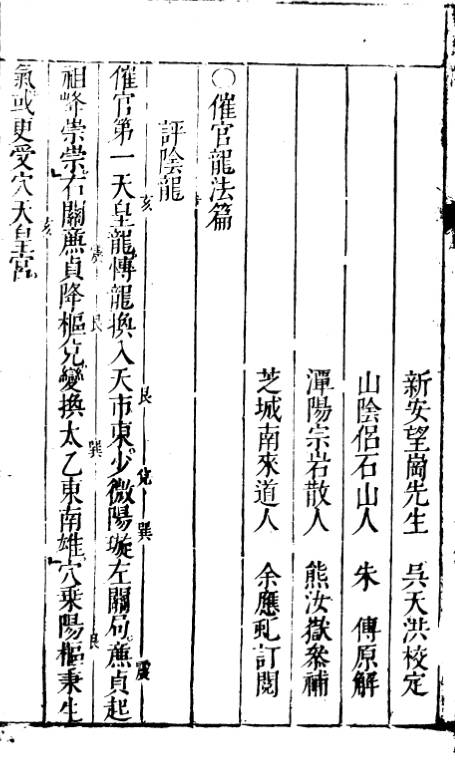 新安望崗先生 吳天洪校定
山陰侶石山人 朱 傅原解
潭陽宗岩散人 熊汝嶽參補
芝城南來道人 余應虬訂閱
○催官龍法篇
評陰龍
亥 艮 兌 巽 震
催官第一天皇龍傳龍換入天市東少微陽璇左關局廉貞起
艮 巽 艮
祖峰崇崇右關廉貞降樞兌變換太乙東南雄穴乘陽樞秉生
亥
氣或更受穴天皇宮